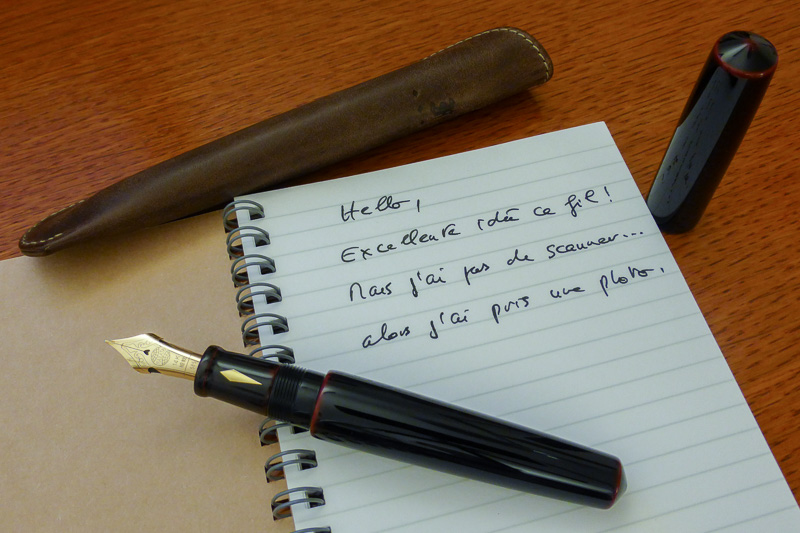 Hello,
Excellente idée ce fil!
Mais j'ai pas de scanner...
alors j'ai pris une photo.